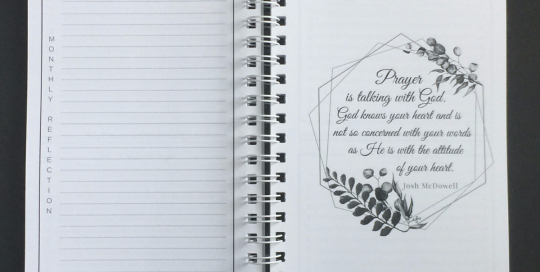 MONTHLY REFLECTION
Prayer
is talking with God.
God knows your heart and is
not so concerned with your words
as He is with the attitude
of your heart.
Josh McDowell